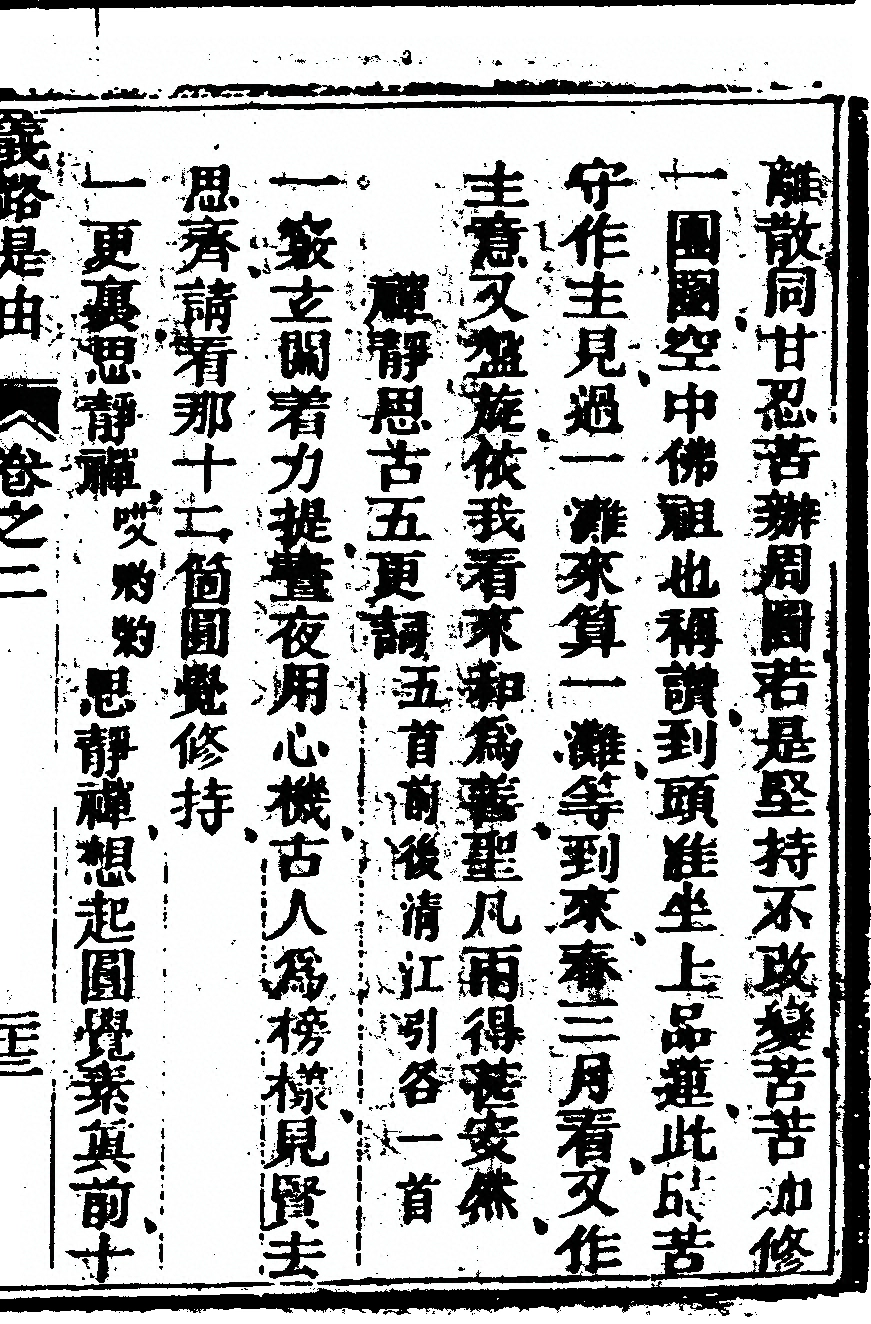 離散同甘忍苦辦周圓若是堅持不改變苦苦加修
一團圞空中佛祖也稱讚到頭准坐上品蓮此成苦
守作主見過一灘來算一灘等到來春三月看又作
主意又盤旋依我看來和為舊聖凡兩得甚安然
禪靜思古五更詞五首前後清江引各一首
一竅玄關着力提晝夜用心機古人為榜樣見賢去
思齊請看那十二箇圓覺修持
一更裏思靜禪哎喲喲思靜禪想起圓覺素真前十
義路是由
卷之二
二十三